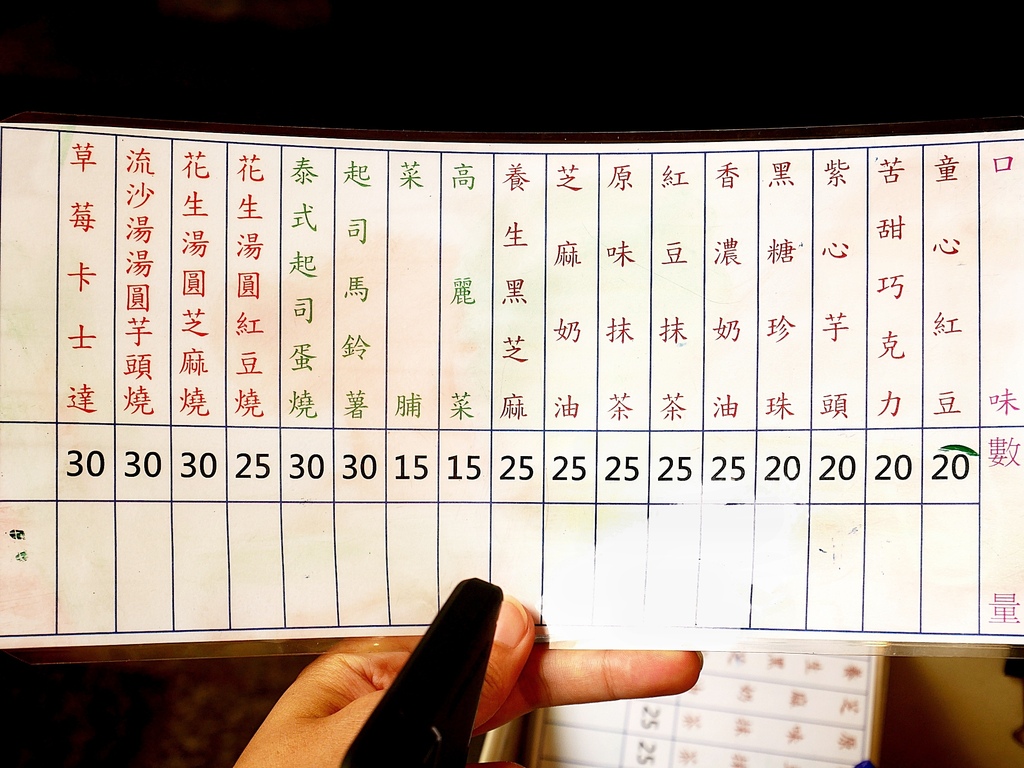 口味
數量
童心紅豆
20
苦甜巧克力
20
紫心芋頭
20
黑糖珍珠
20
香濃奶油
25
紅豆抹茶
25
原味抹茶
25
芝麻奶油
25
養生黑芝麻
25
高麗菜
15
菜脯
15
起司馬鈴薯
30
泰式起司蛋燒
30
花生湯圓紅豆燒
25
花生湯圓芝麻燒
30
流沙湯湯圓芋頭燒
30
草莓卡士達
30
25
25